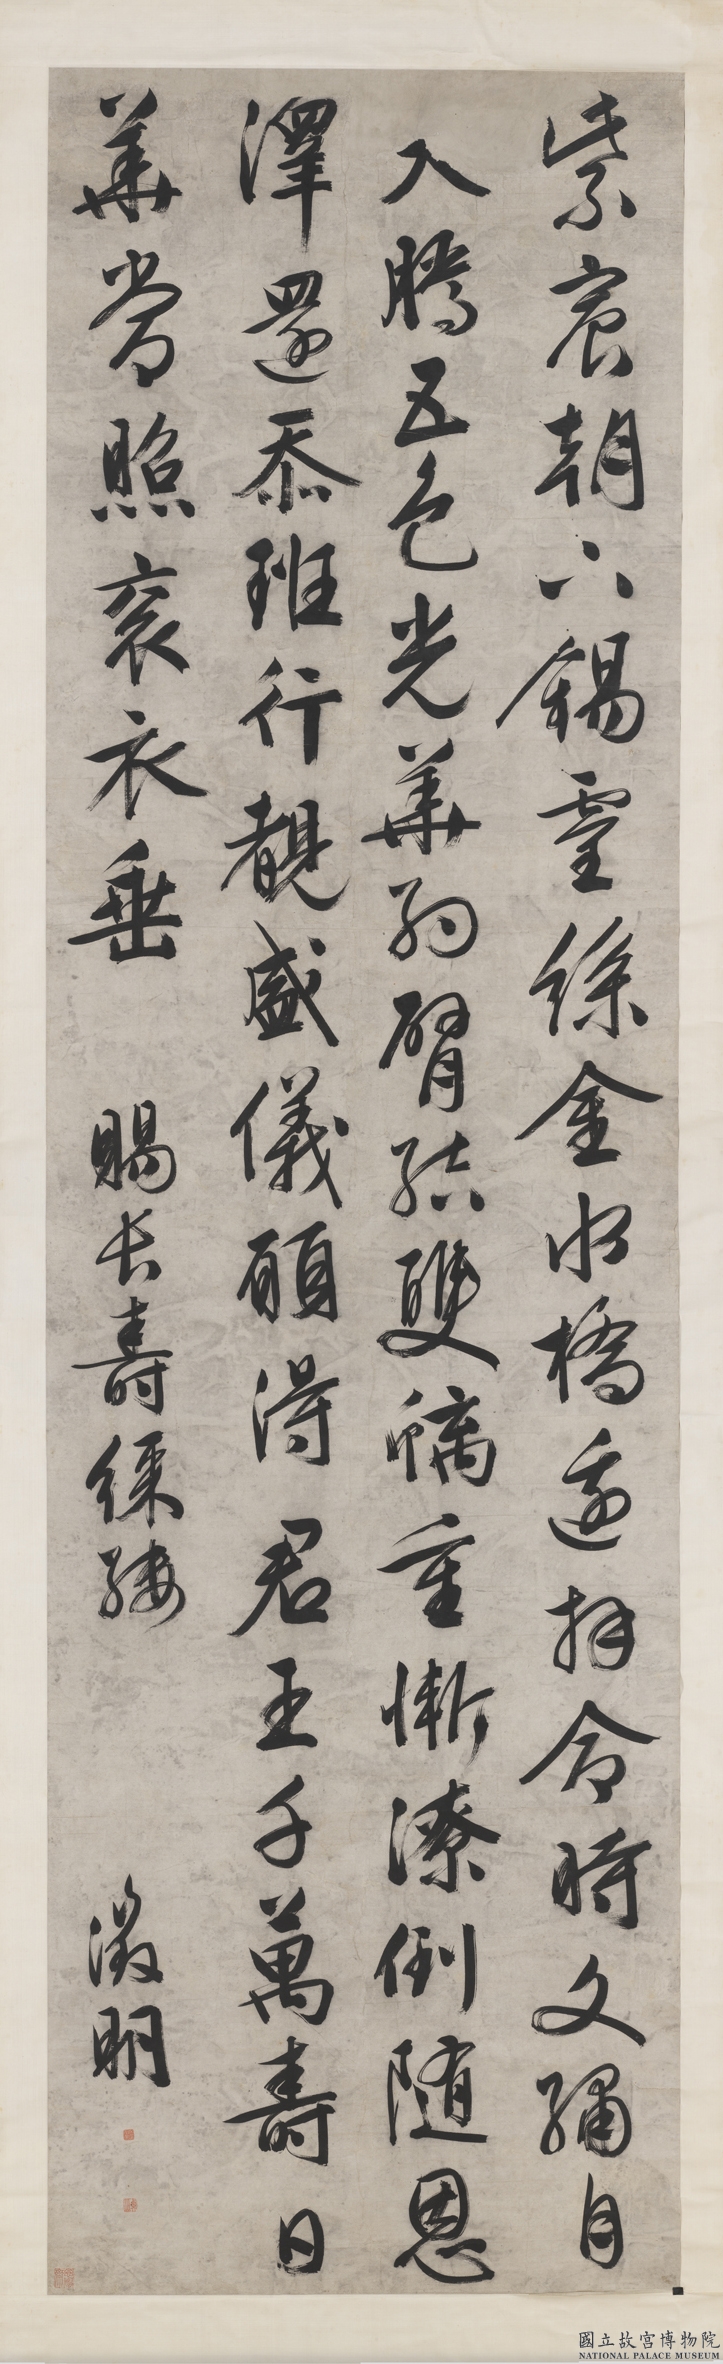 紫宸朝下錫靈絲金水橋邊拜命時文繡月
入騰五色光華約臂結雙螭重慚潦倒隨恩
澤還忝班行覩盛儀願得君王千萬壽日
華常照袞衣垂　賜長壽綵縷　徵明
國立故宮博物院
NATIONAL PALACE MUSEUM